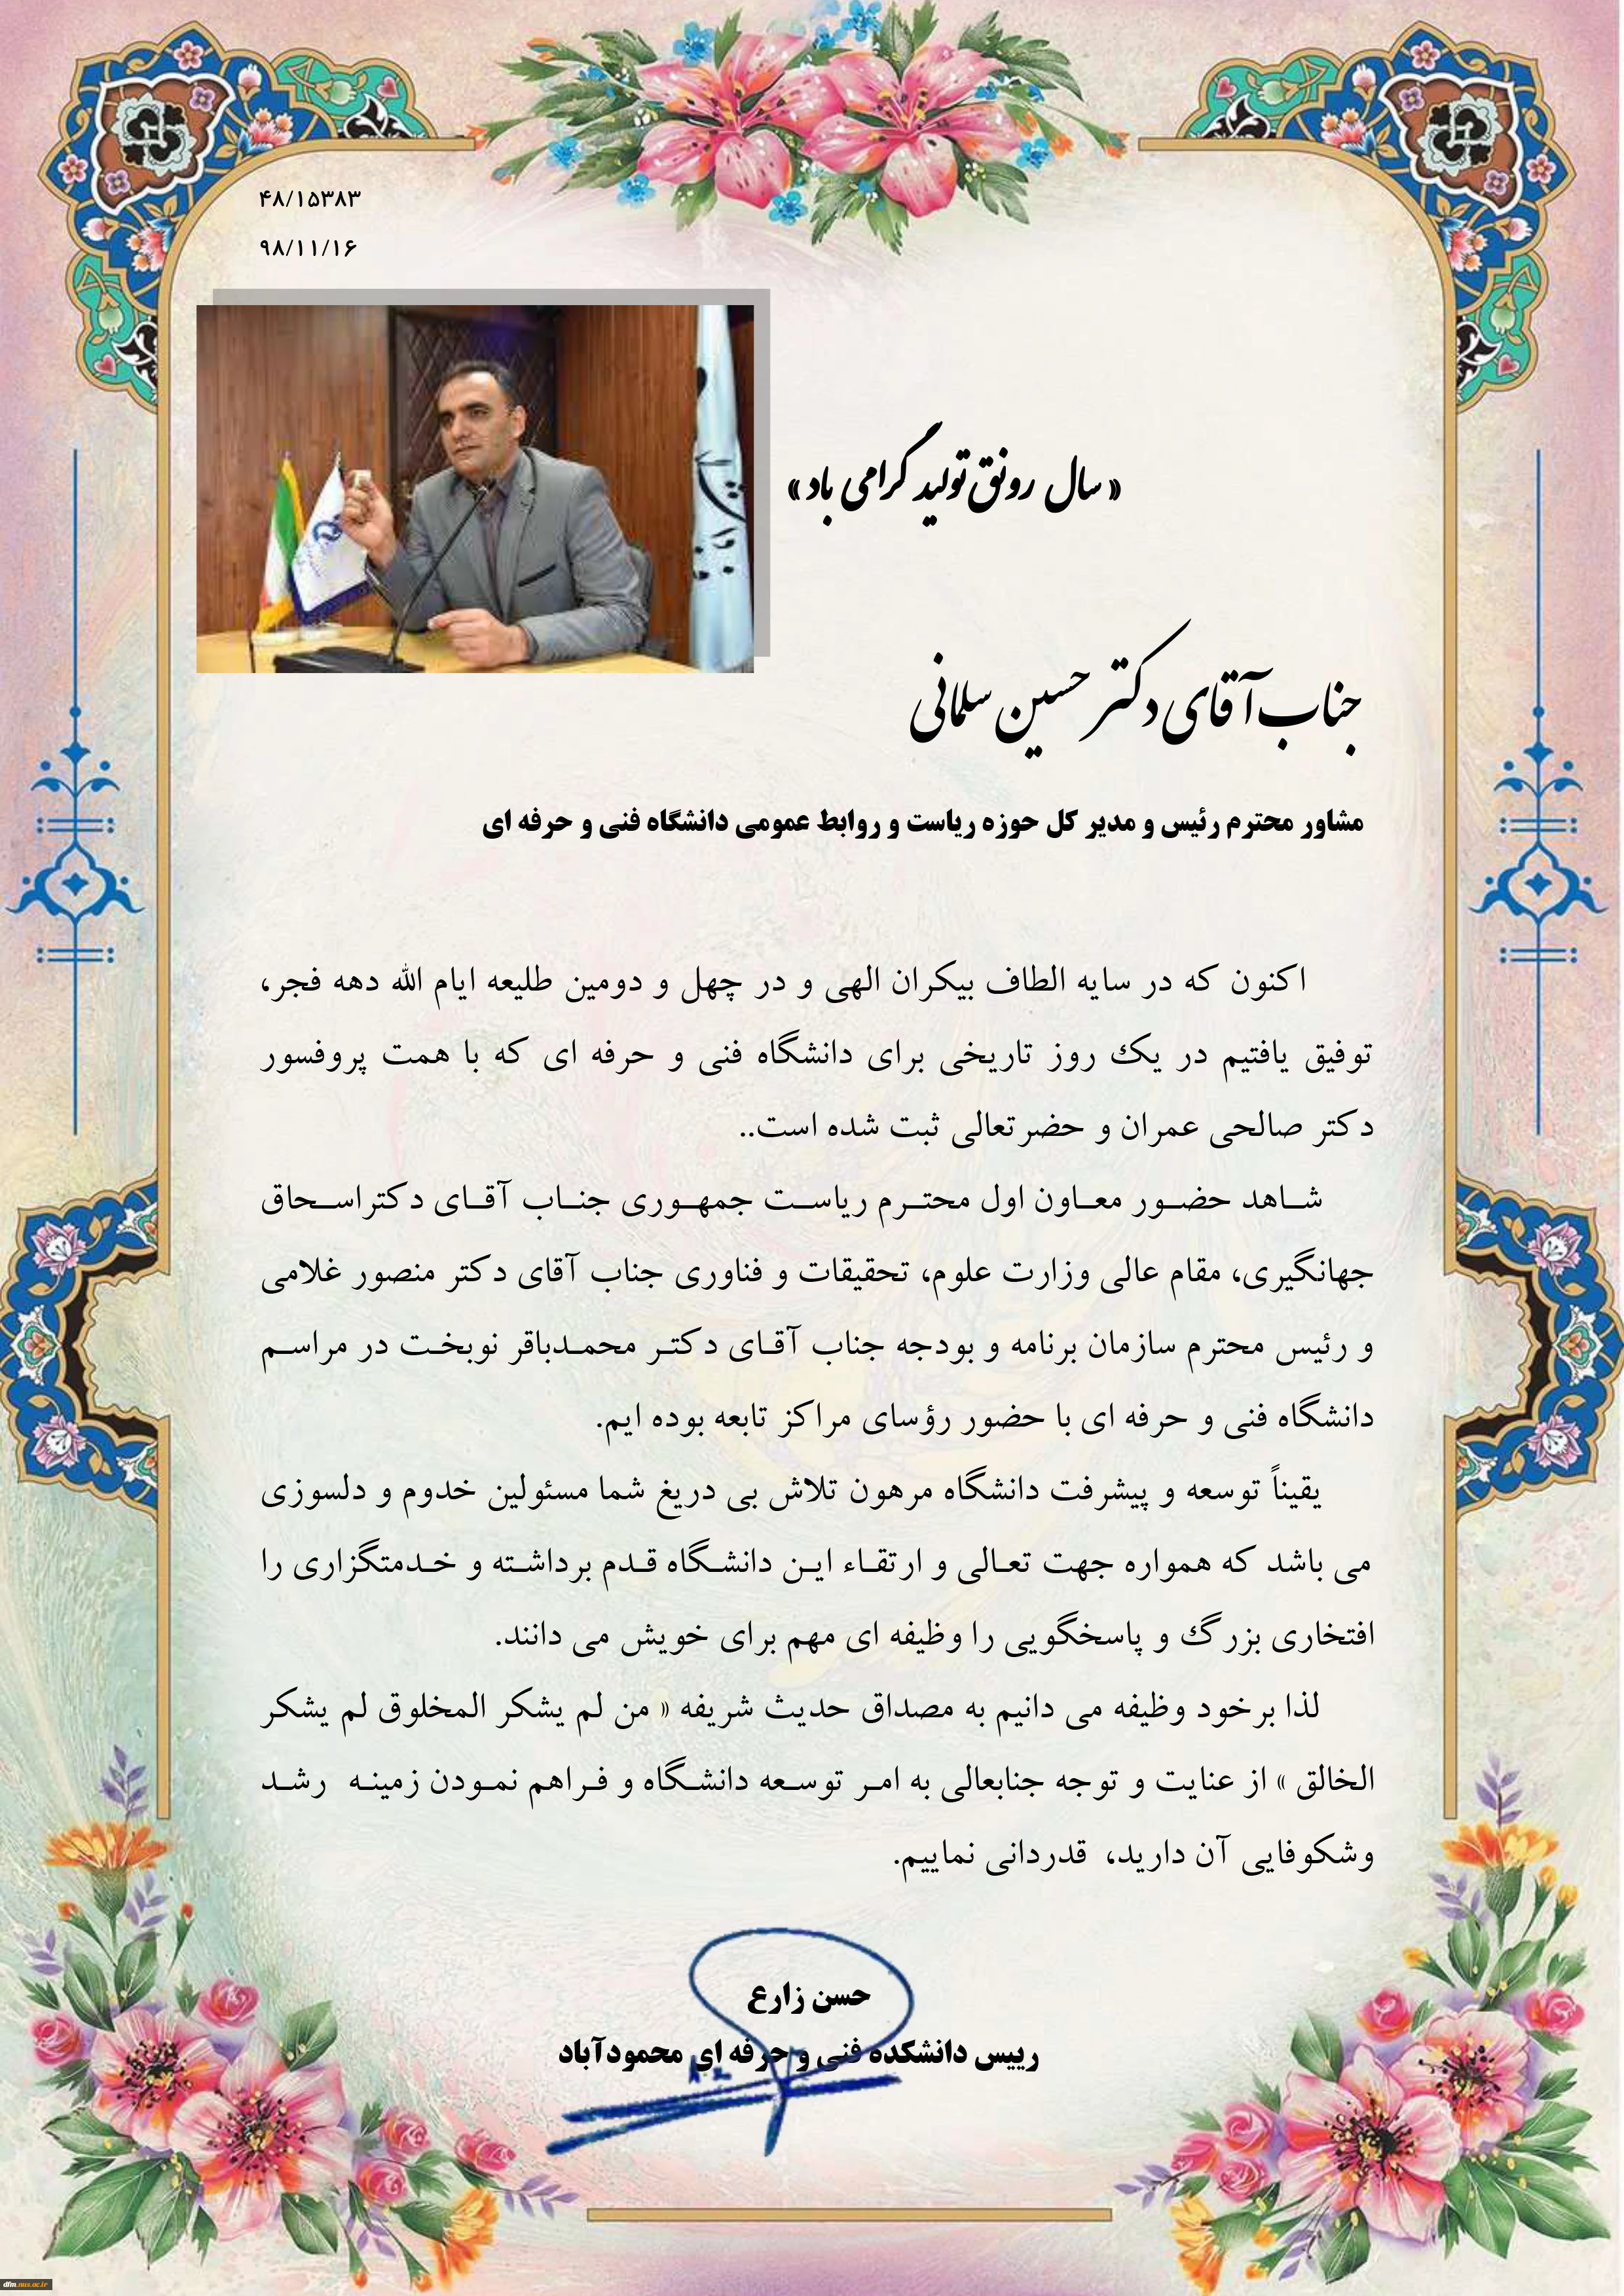 ۴۸/۱۵۳۸۳
۹۸/۱۱/۱۶
« سال رونق تولید گرامی باد »
جناب آقای دکتر حسین سلمانی
مشاور محترم رئیس و مدیر کل حوزه ریاست و روابط عمومی دانشگاه فنی و حرفه ای
اکنون که در سایه الطاف بیکران الهی و در چهل و دومین طلیعه ایام الله دهه فجر،
توفیق یافتیم در یک روز تاریخی برای دانشگاه فنی و حرفه ای که با همت پروفسور
دکتر صالحی عمران و حضرتعالی ثبت شده است..
شاهد حضور معاون اول محترم ریاست جمهوری جناب آقای دکتراسحاق
جهانگیری، مقام عالی وزارت علوم، تحقیقات و فناوری جناب آقای دکتر منصور غلامی
و رئیس محترم سازمان برنامه و بودجه جناب آقای دکتر محمدباقر نوبخت در مراسم
دانشگاه فنی و حرفه ای با حضور رؤسای مراکز تابعه بوده ایم.
یقیناً توسعه و پیشرفت دانشگاه مرهون تلاش بی دریغ شما مسئولین خدوم و دلسوزی
می باشد که همواره جهت تعالی و ارتقاء این دانشگاه قدم برداشته و خدمتگزاری را
افتخاری بزرگ و پاسخگویی را وظیفه ای مهم برای خویش می دانند.
لذا برخود وظیفه می دانیم به مصداق حدیث شریفه « من لم یشکر المخلوق لم یشکر
الخالق » از عنایت و توجه جنابعالی به امر توسعه دانشگاه و فراهم نمودن زمینه رشد
وشکوفایی آن دارید، قدردانی نماییم.
حسن زارع
رییس دانشکده فنی و حرفه ای محمودآباد
dfm.nus.ac.ir